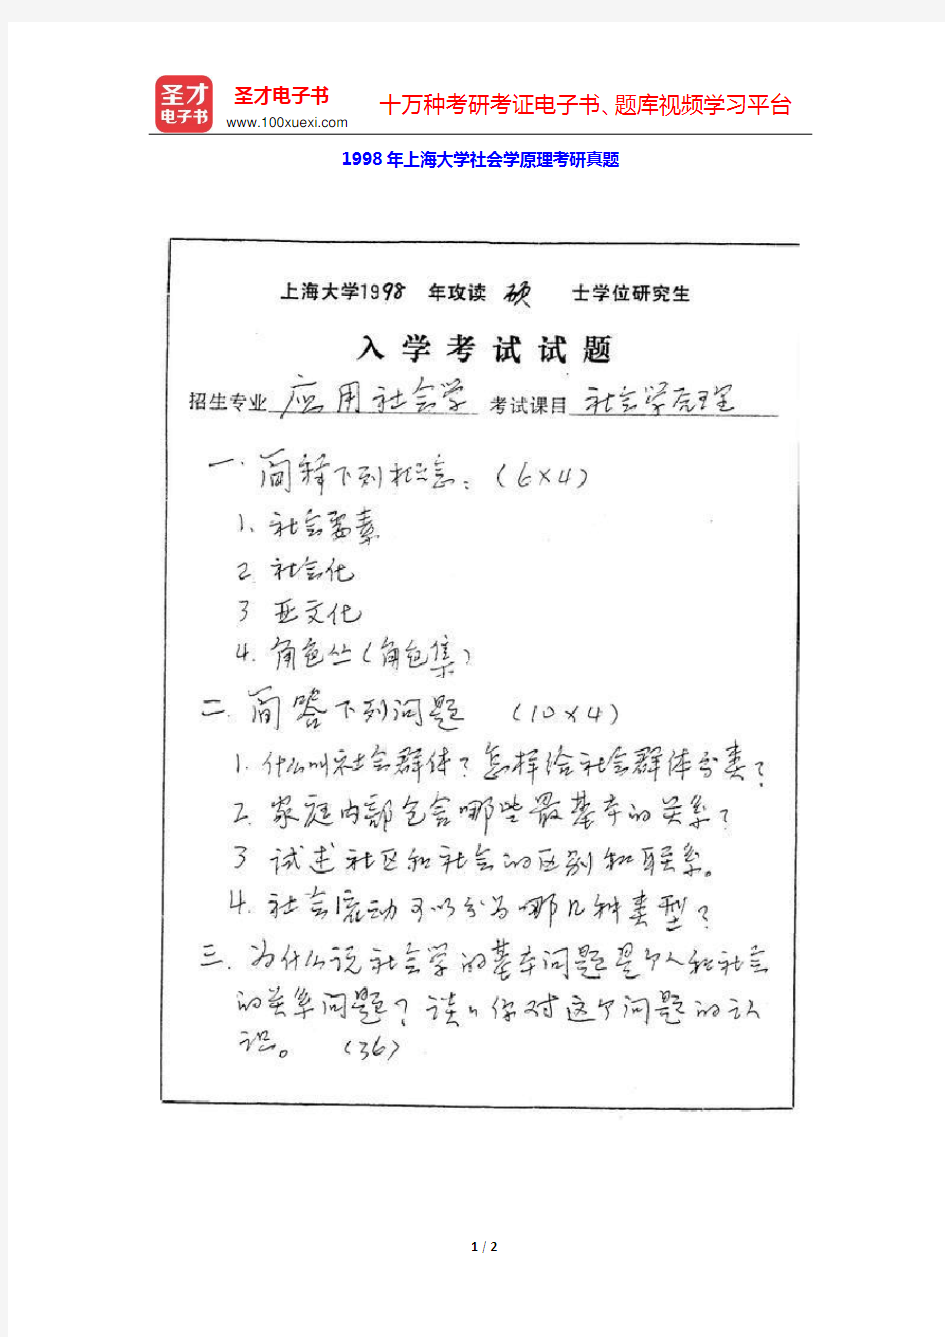 圣才
电子书
圣才电子书
www.100xuexi.com
十万种考研考证电子书、题库视频学习平台
1998年上海大学社会学原理考研真题
上海大学1998 年攻读 硕 士学位研究生
入学考试试题
招生专业 应用社会学 考试课目 社会学原理
一. 简释下列概念: (6×4)
1、社会要素
2. 社会化
3 亚文化
4. 角色丛(角色集)
二. 简答下列问题 (10×4)
1. 什么叫社会群体? 怎样给社会群体分类?
2. 家庭内部包含哪些最基本的关系?
3 试述社区和社会的区别和联系。
4. 社会流动可以分为哪几种类型?
三. 为什么说社会学的基本问题是个人和社会
的关系问题? 谈〃你对这个问题的认
识。 (36)
1 / 2